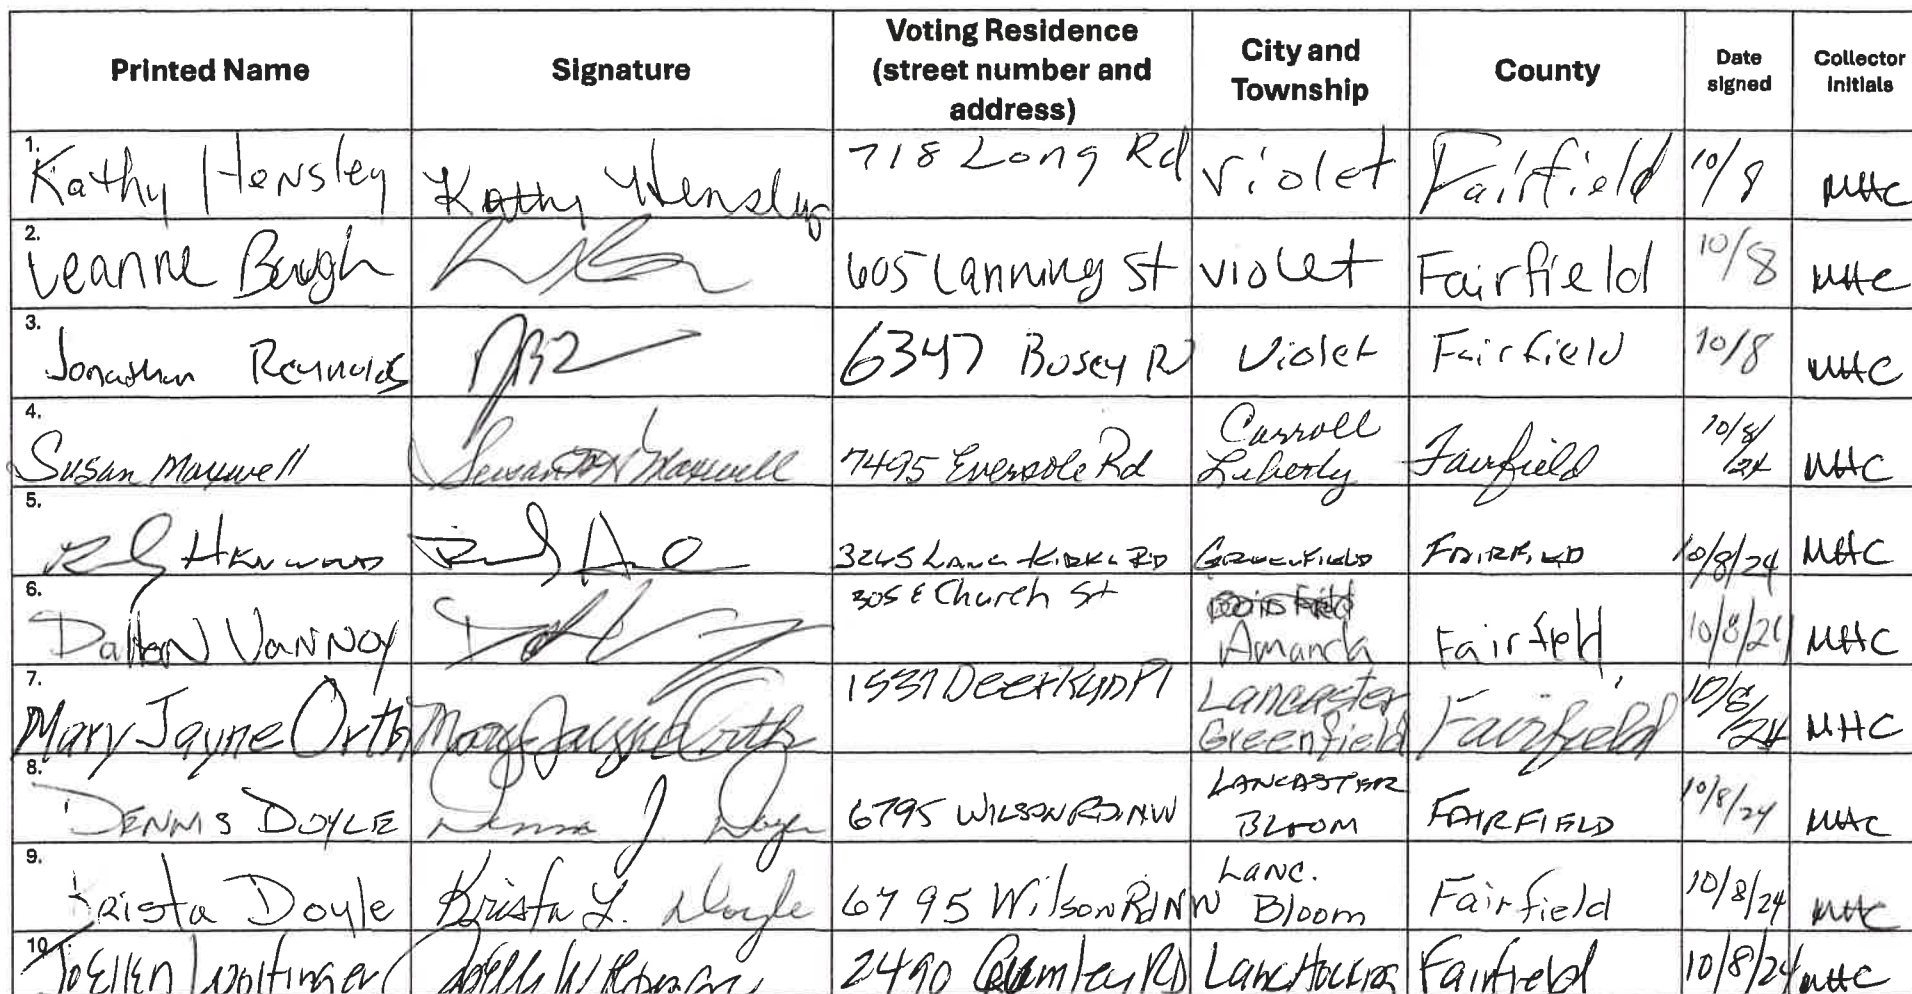 Printed Name Signature Voting Residence (street number and address) City and Township County Date signed Collector initials
1. Kathy Hensley Kathy Hensley 718 Long Rd Violet Fairfield 10/8 MHC
2. Leanne Baugh 605 Lanning St violet Fairfield 10/8 MHC
3. Jonathan Reynolds 6347 Busey R Violet Fairfield 10/8 MHC
4. Susan Maxwell Susan Maxwell 7495 Eversole Rd Carroll Liberty Fairfield 10/8/24 MHC
5. 3265 Lanc-Kirk Rd Greenfield Fairfield 10/8/24 MHC
6. Dalton VanNoy 305 E Church St Amanda Fairfield 10/8/24 MHC
7. Mary Jayne Orth Mary Jayne Orth 1537 Deer Run Pl Lancaster Greenfield Fairfield 10/8/24 MHC
8. DENNIS DOYLE Dennis J. Doyle 6795 WILSON RD. NW LANCASTER BLOOM FAIRFIELD 10/8/24 MHC
9. Krista Doyle Krista L. Doyle 6795 Wilson Rd NW Lanc. Bloom Fairfield 10/8/24 MHC
10. JoEllen 2490 Crumley RD Lanc Hocking Fairfield 10/8/24 MHC